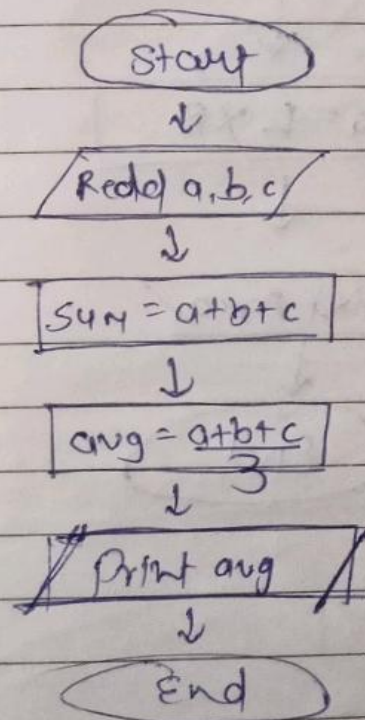 Start
Read a, b, c
Sum = a+b+c
avg = a+b+c
3
Print avg
End